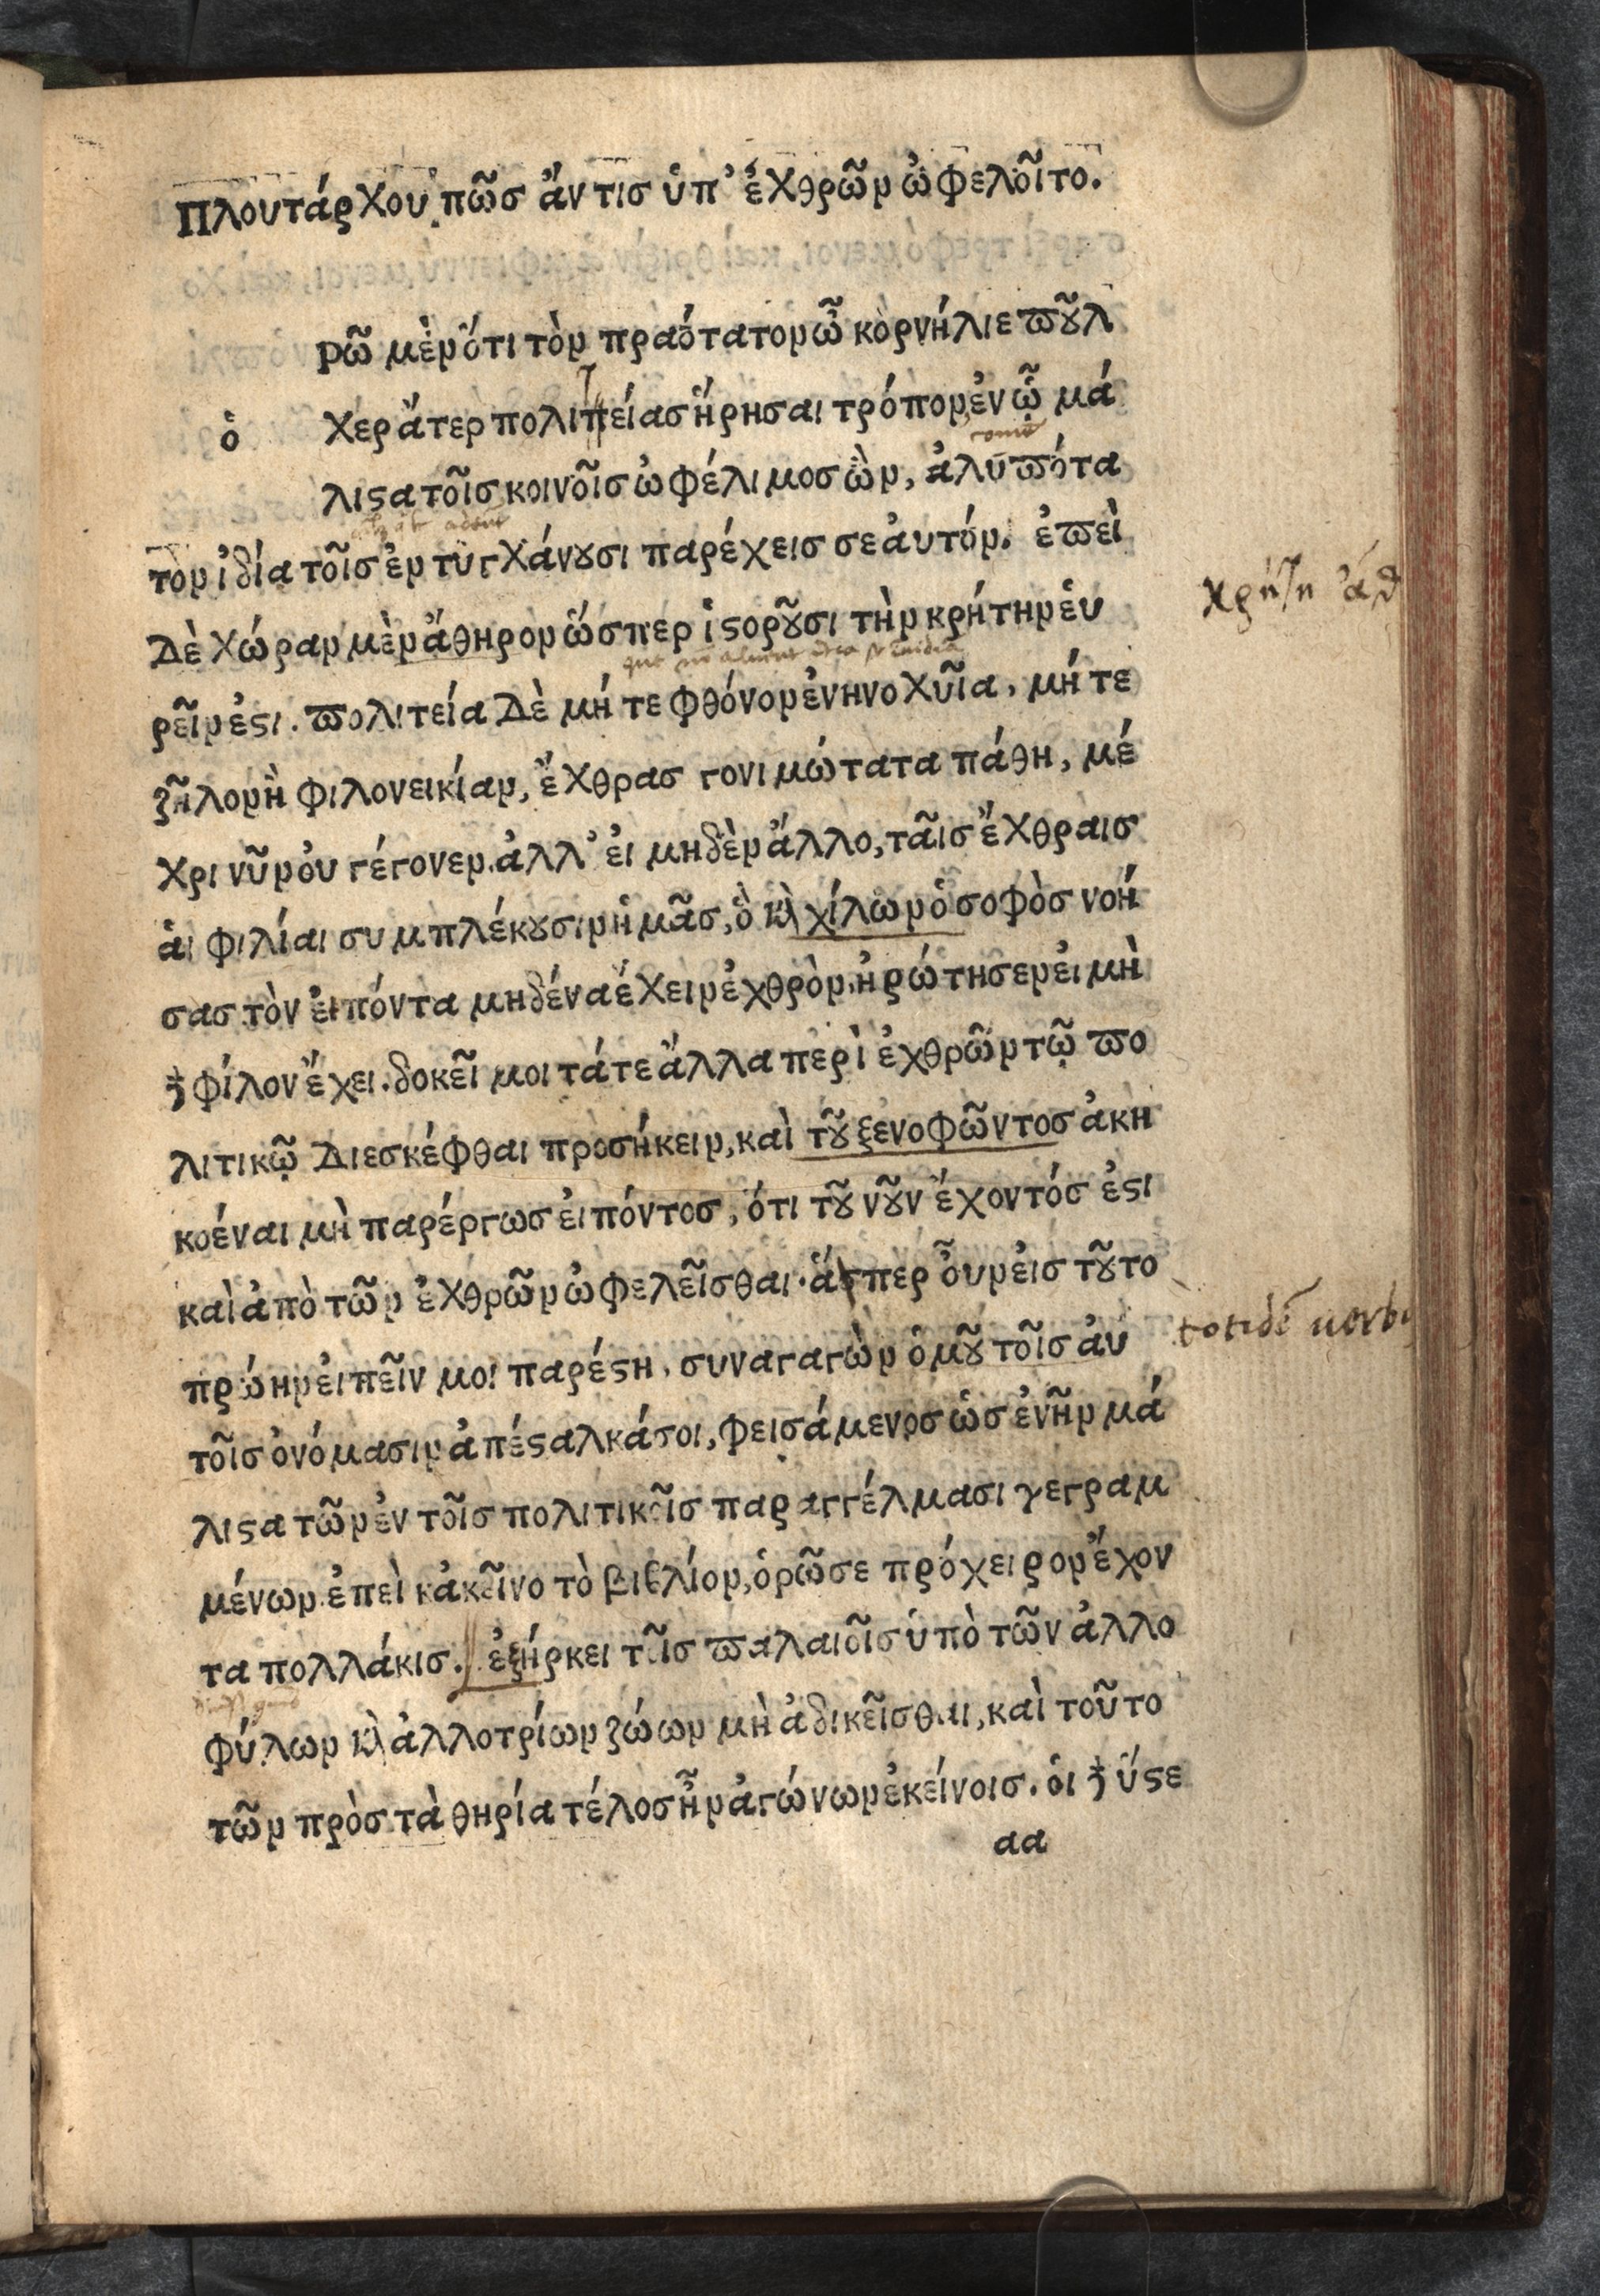 Πλουτάρχου πῶσ ἄν τισ ὑπ' ἐχθρῶν ὠφελοῖτο.
ρῶ μὲν ὅτι τὸν πραότατον ὦ κορνήλιε πȣ͂λ
ὁ χερ ἄτερ πολιπείασ ἥρησαι τρόπον ἐν ᾧ μά
λιϛα τοῖσ κοινοῖσ ὠφέλιμοσ ὢν, ἀλυπότα
τον ἰδία τοῖσ ἐν τυγχάνȣσι παρέχεισ σεἀυτόν. ἐπεὶ
Δὲ χώραν μὲν ἄθηρον ὥσπερ ἱϛορȣ͂σι τὴν κρήτην ἑυ
ρεῖν ἐϛι. πολιτεία Δὲ μή τε φθόνον ἐνηνοχυῖα, μή τε
ζῆλον ἢ φιλονεικίαν, ἔχθρασ γονιμώτατα πάθη, μέ
χρι νῦν ὀυ γέγονεν. ἀλλ' ἐι μηδὲν ἄλλο, ταῖσ ἔχθραισ
ἁι φιλίαι συμπλέκȣσιν ἡμᾶσ, ὃ κὶ χίλων ὁ σοφὸσ νοή
σασ τὸν ἐιπόντα μηδένα ἔχειν ἐχθρὸν, ἠρώτησεν ἐι μὴ
ϗ φίλον ἔχει. δοκεῖ μοι τά τε ἄλλα περὶ ἐχθρῶν τῷ πο
λιτικῷ Διεσκέφθαι προσήκειν, καὶ τȣ͂ ξενοφῶντοσ ἀκη
κοέναι μὴ παρέργωσ ἐιπόντοσ, ὅτι τȣ͂ νȣ͂ν ἔχοντόσ ἐϛι
καὶ ἀπὸ τῶν ἐχθρῶν ὠφελεῖσθαι. ἅπερ ὖν ἐισ τȣ͂το
πρώην ἐιπεῖν μοι παρέϛη, συναγαγὼν ὁμȣ͂ τοῖσ ἀυ
τοῖσ ὀνόμασιν ἀπέϛαλκά σοι, φεισάμενοσ ὡσ ἐνῆν μά
λιϛα τῶν ἐν τοῖσ πολιτικοῖσ παραγγέλμασι γεγραμ
μένων. ἐπεὶ κἀκεῖνο τὸ βιβλίον, ὁρῶ σε πρόχειρον ἔχον
τα πολλάκισ. ἐξήρκει τοῖσ παλαιοῖσ ὑπὸ τῶν ἀλλο
φύλων κὶ ἀλλοτρίων ζώων μὴ ἀδικεῖσθαι, καὶ τοῦτο
τῶν πρὸσ τὰ θηρία τέλοσ ἦν ἀγώνων ἐκείνοισ. ὁι ϗ ὕϛε
αα
totidē uerbi